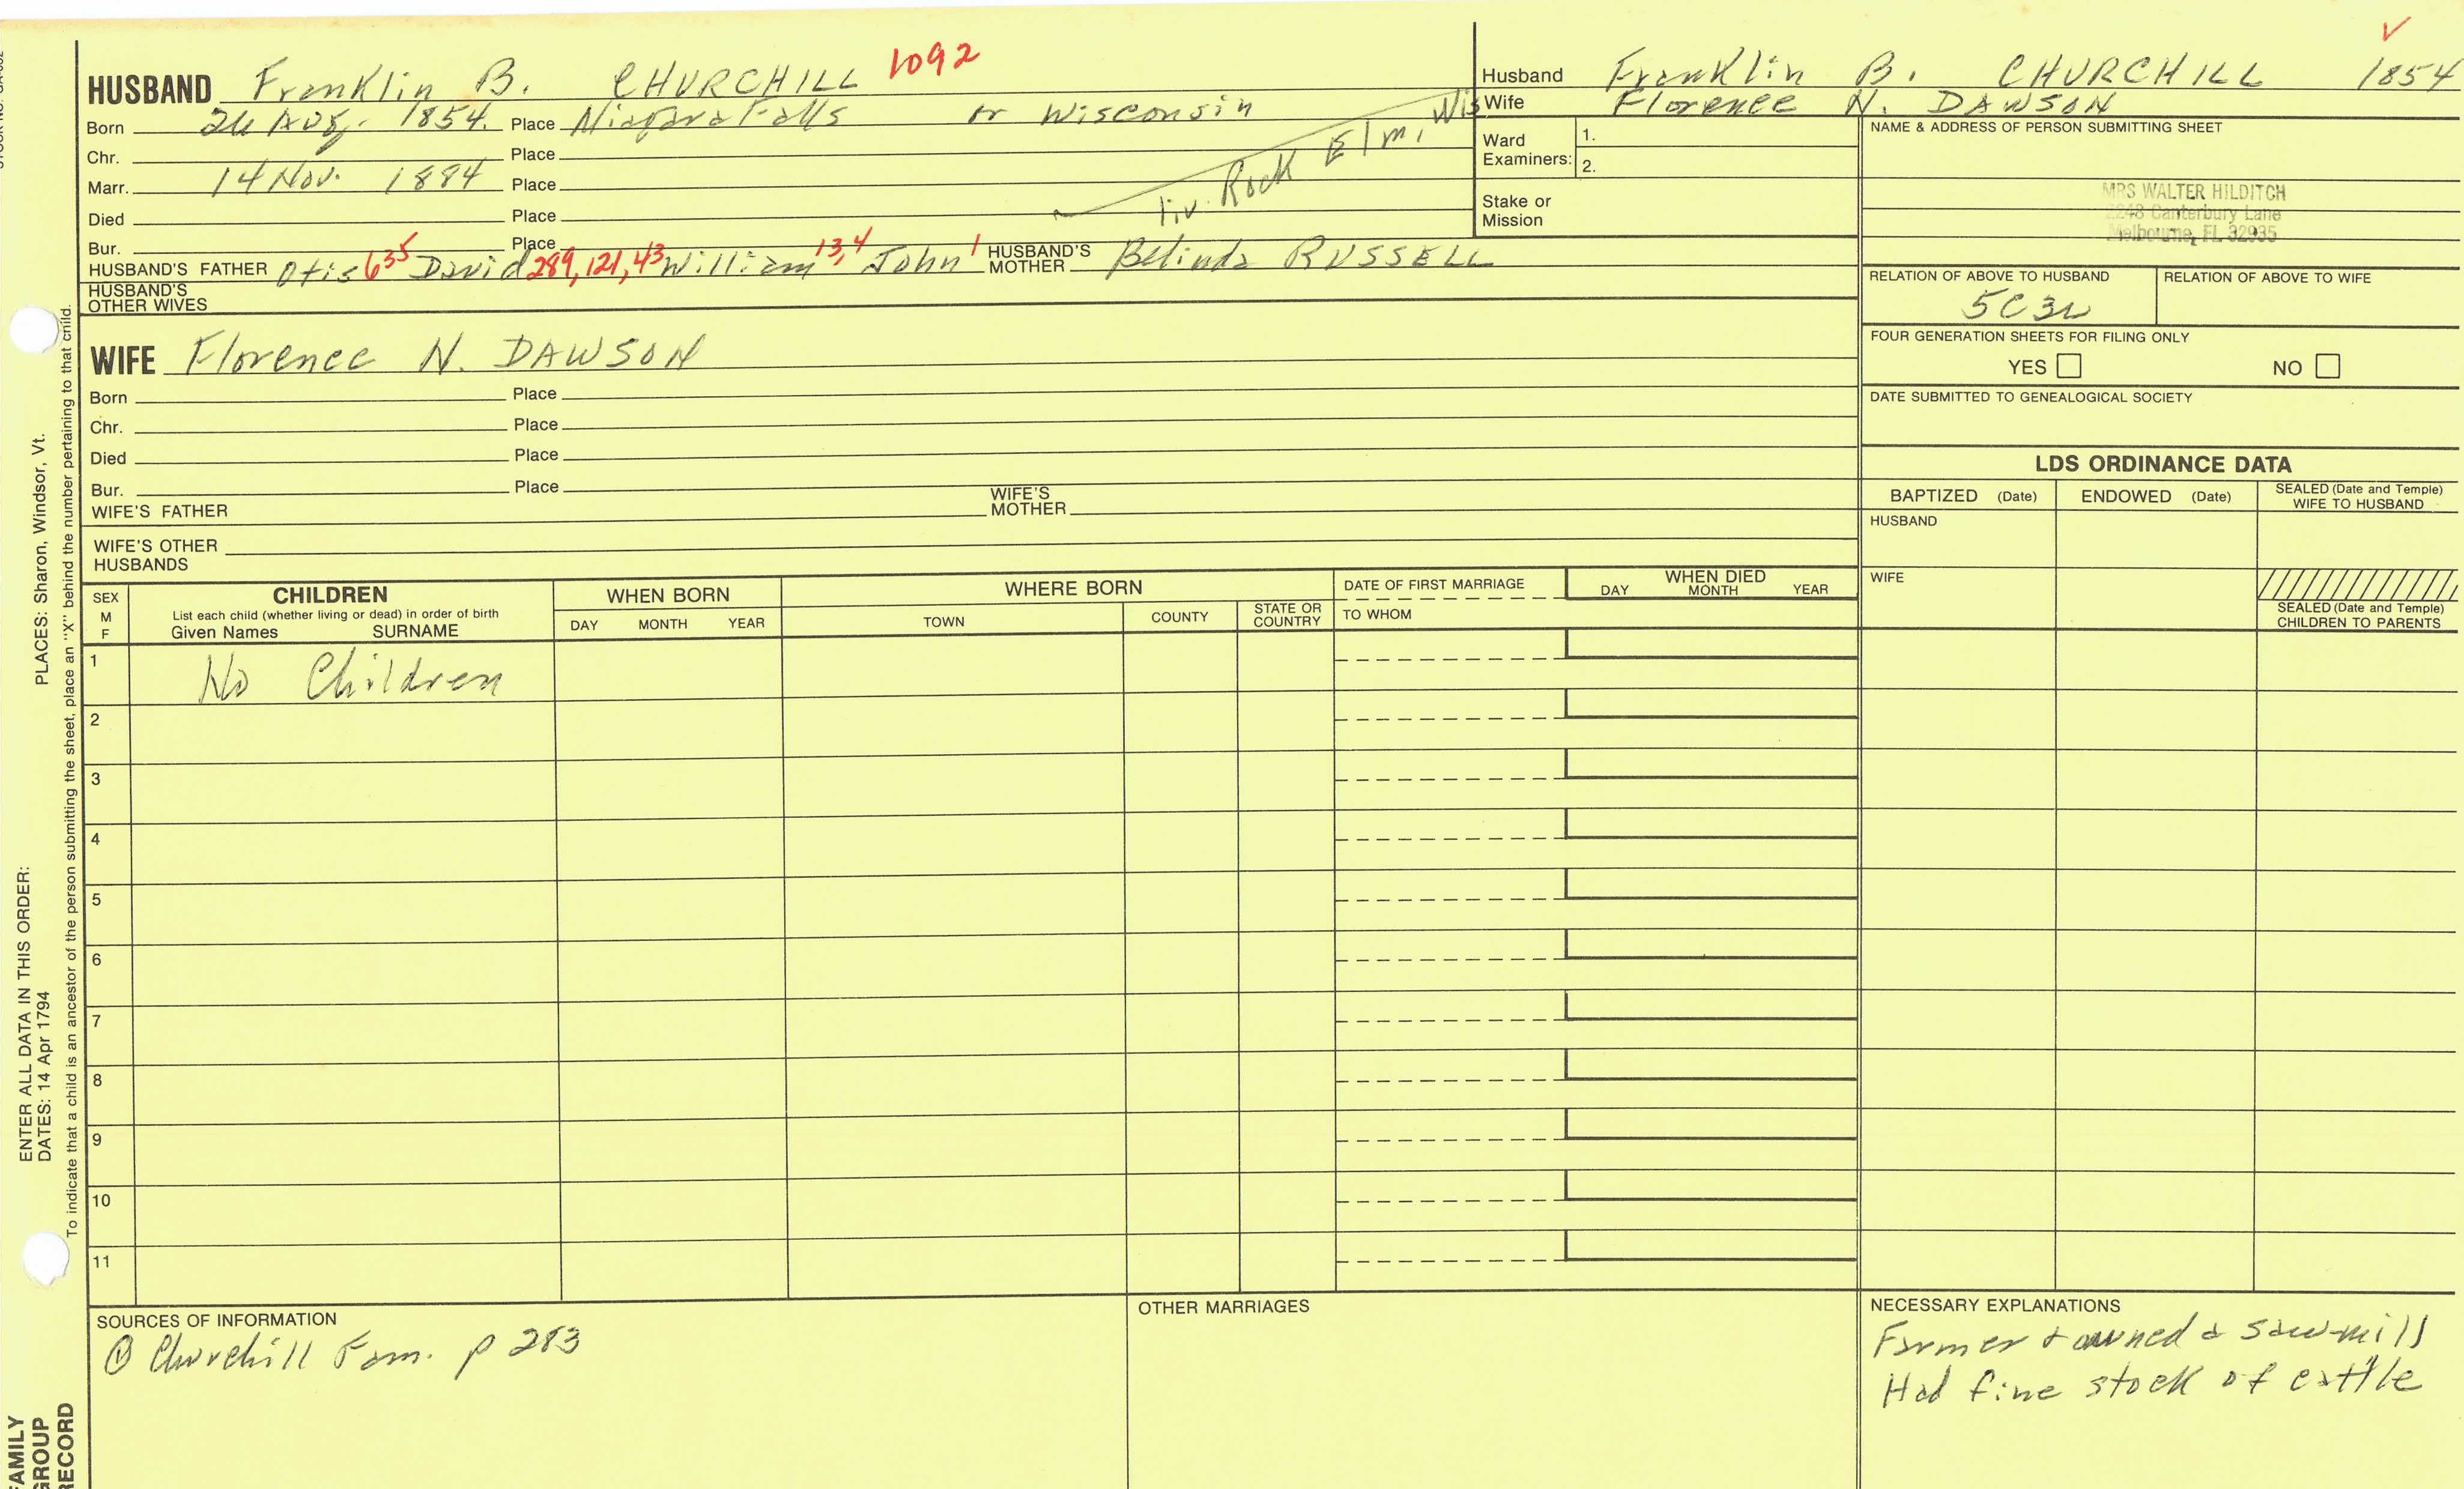 HUSBAND Franklin B. CHURCHILL 1092
Born 26 Aug. 1854. Place Niagara Falls or Wisconsin
Chr. Place
Marr. 14 Nov. 1884 Place
Died Place
Bur. Place
liv. Rock Elm, Wis
HUSBAND'S FATHER Otis 635 David 289, 121, 43 William 13, 4 John 1 HUSBAND'S MOTHER Belinda RUSSELL
HUSBAND'S OTHER WIVES
WIFE Florence N. DAWSON
Born Place
Chr. Place
Died Place
Bur. Place
WIFE'S FATHER WIFE'S MOTHER
WIFE'S OTHER HUSBANDS
Husband Franklin B. CHURCHILL 1854
Wife Florence N. DAWSON
Ward Examiners: 1.
2.
Stake or Mission
NAME & ADDRESS OF PERSON SUBMITTING SHEET
MRS WALTER HILDITCH
Canterbury Lane
Melbourne, FL 32935
RELATION OF ABOVE TO HUSBAND RELATION OF ABOVE TO WIFE
5C3R
FOUR GENERATION SHEETS FOR FILING ONLY
YES NO
DATE SUBMITTED TO GENEALOGICAL SOCIETY
LDS ORDINANCE DATA
BAPTIZED (Date) ENDOWED (Date) SEALED (Date and Temple) WIFE TO HUSBAND
HUSBAND
WIFE
SEALED (Date and Temple) CHILDREN TO PARENTS
SEX M F
CHILDREN
List each child (whether living or dead) in order of birth
Given Names SURNAME
WHEN BORN
DAY MONTH YEAR
WHERE BORN
TOWN COUNTY STATE OR COUNTRY
DATE OF FIRST MARRIAGE
TO WHOM
WHEN DIED
DAY MONTH YEAR
1 No Children
2
3
4
5
6
7
8
9
10
11
SOURCES OF INFORMATION
① Churchill Fam. p 283
OTHER MARRIAGES
NECESSARY EXPLANATIONS
Farmer + owned a saw-mill
Had fine stock of cattle
ENTER ALL DATA IN THIS ORDER:
DATES: 14 Apr 1794 PLACES: Sharon, Windsor, Vt.
To indicate that a child is an ancestor of the person submitting the sheet, place an "X" behind the number pertaining to that child.
FAMILY
GROUP
RECORD